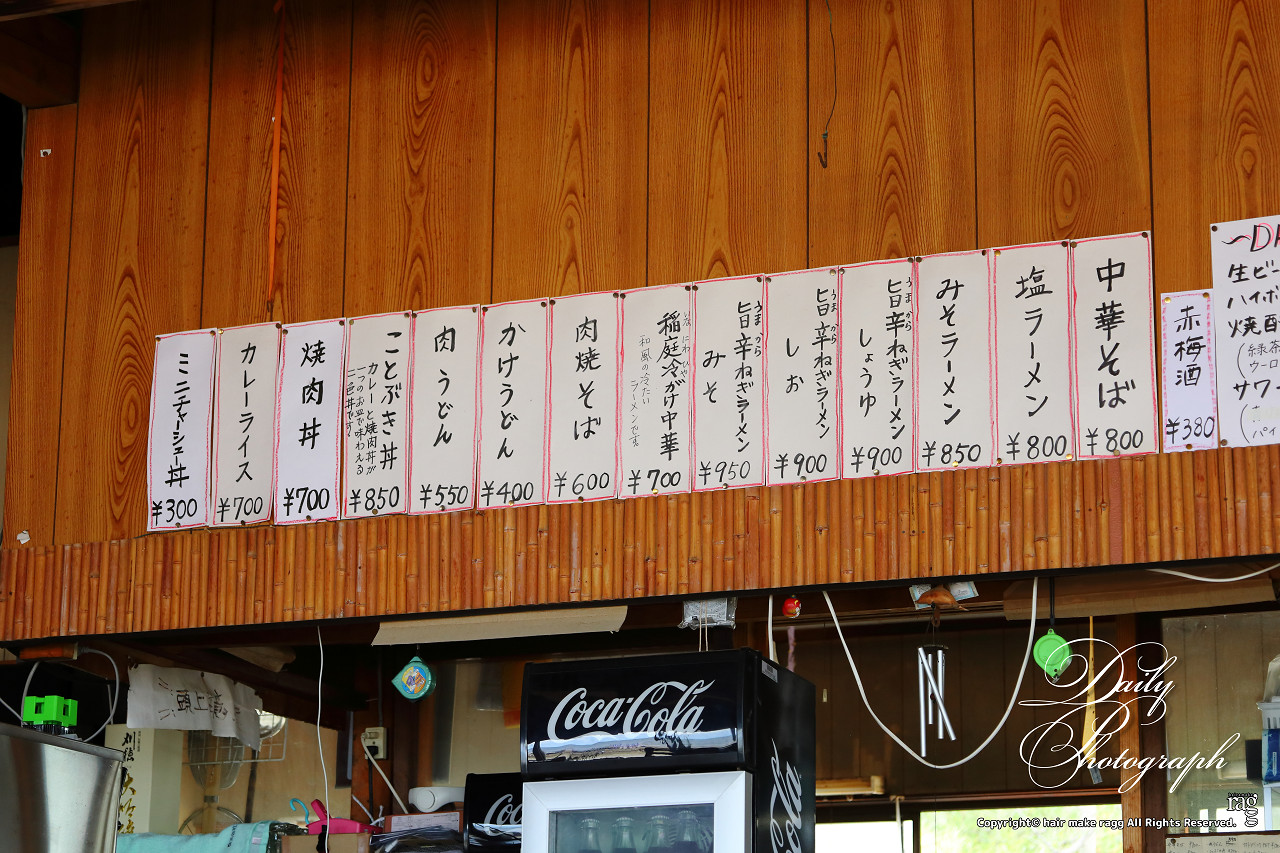 中華そば
¥800
塩ラーメン
¥800
みそラーメン
¥850
旨辛ねぎラーメン
うま から
しょうゆ
¥900
旨辛ねぎラーメン
うま から
しお
¥900
旨辛ねぎラーメン
うま から
みそ
¥950
稲庭冷がけ中華
いなにわひや
和風の冷たい
ラーメンです
¥700
肉焼そば
¥600
かけうどん
¥400
肉うどん
¥550
ことぶき丼
カレーと焼肉丼が
一つのお皿で味わえる
二色丼です。
¥850
焼肉丼
¥700
カレーライス
¥700
ミニチャーシュー丼
¥300
赤梅酒
¥380
生ビー
ハイボ
サワ
パイ
Coca-Cola
Coca
Cola
Daily
Photograph
rag
Copyright© hair make ragg All Rights Reserved.